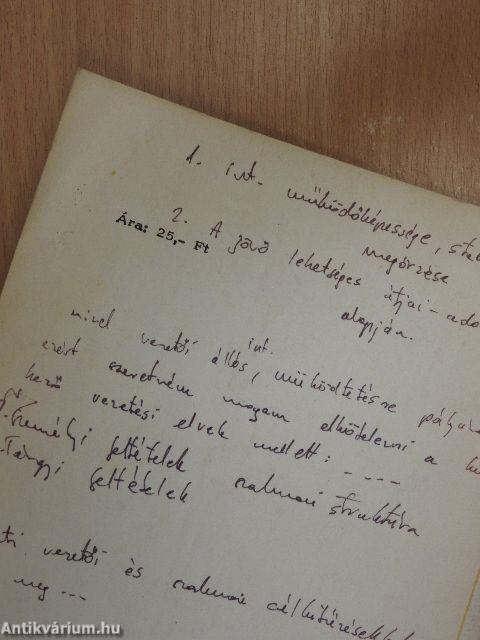 1. int. működőképessége, sta
megőrzése
2. A jövő lehetséges útjai - ado
alapján.
Ára: 25,- Ft
int.
mivel vezetői állás, működtetésre pályá
ezért szeretném magam elkötelezni a kö
kező vezetési elvek mellett: - - - -
1. Személyi feltételek szakmai struktúra
Tárgyi feltételek
vezetői és szakmai célkitűzések
meg - - -
Antikvárium.hu